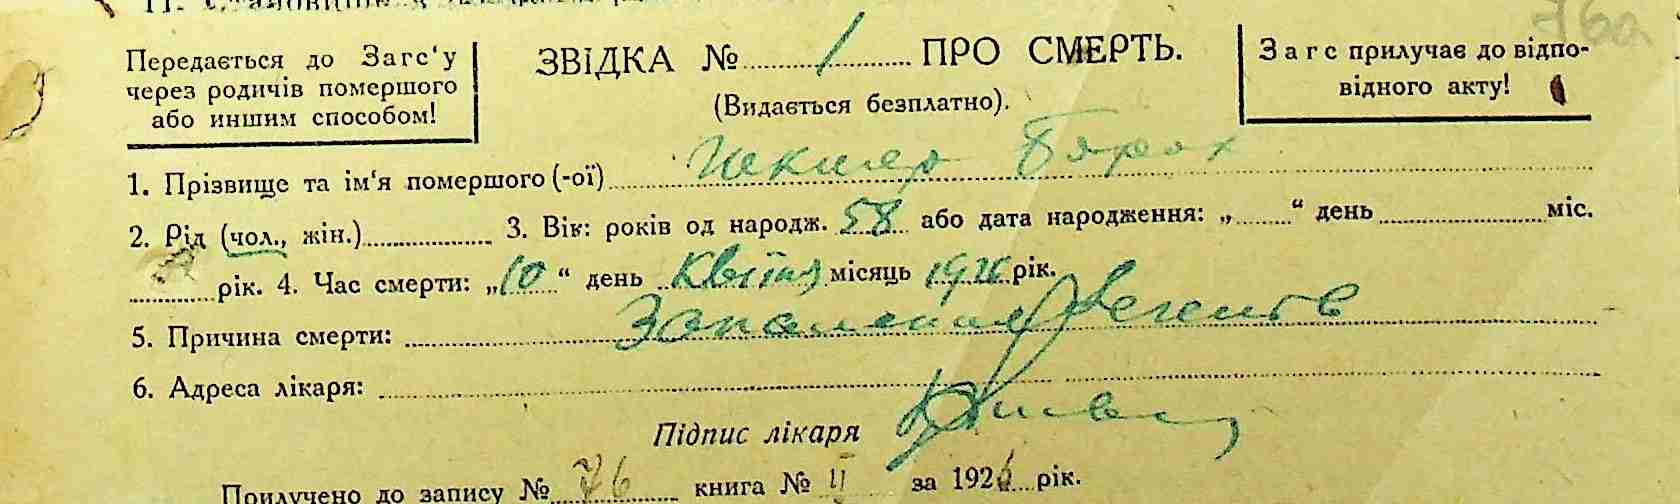 76а
Передається до Загс‘у
через родичів помершого
або иншим способом!
ЗВІДКА № 1 ПРО СМЕРТЬ.
(Видається безплатно).
Загс прилучає до відпо-
відного акту!
1. Прізвище та ім‘я помершого (-ої) Барох
2. Рід (чол., жін.) 3. Вік: років од народж. 58 або дата народження: „ “ день міс.
рік. 4. Час смерти: „10“ день Квітня місяць 1926 рік.
5. Причина смерти: Запалення легенів
6. Адреса лікаря:
Підпис лікаря
Прилучено до запису № 76 книга № II за 1926 рік.